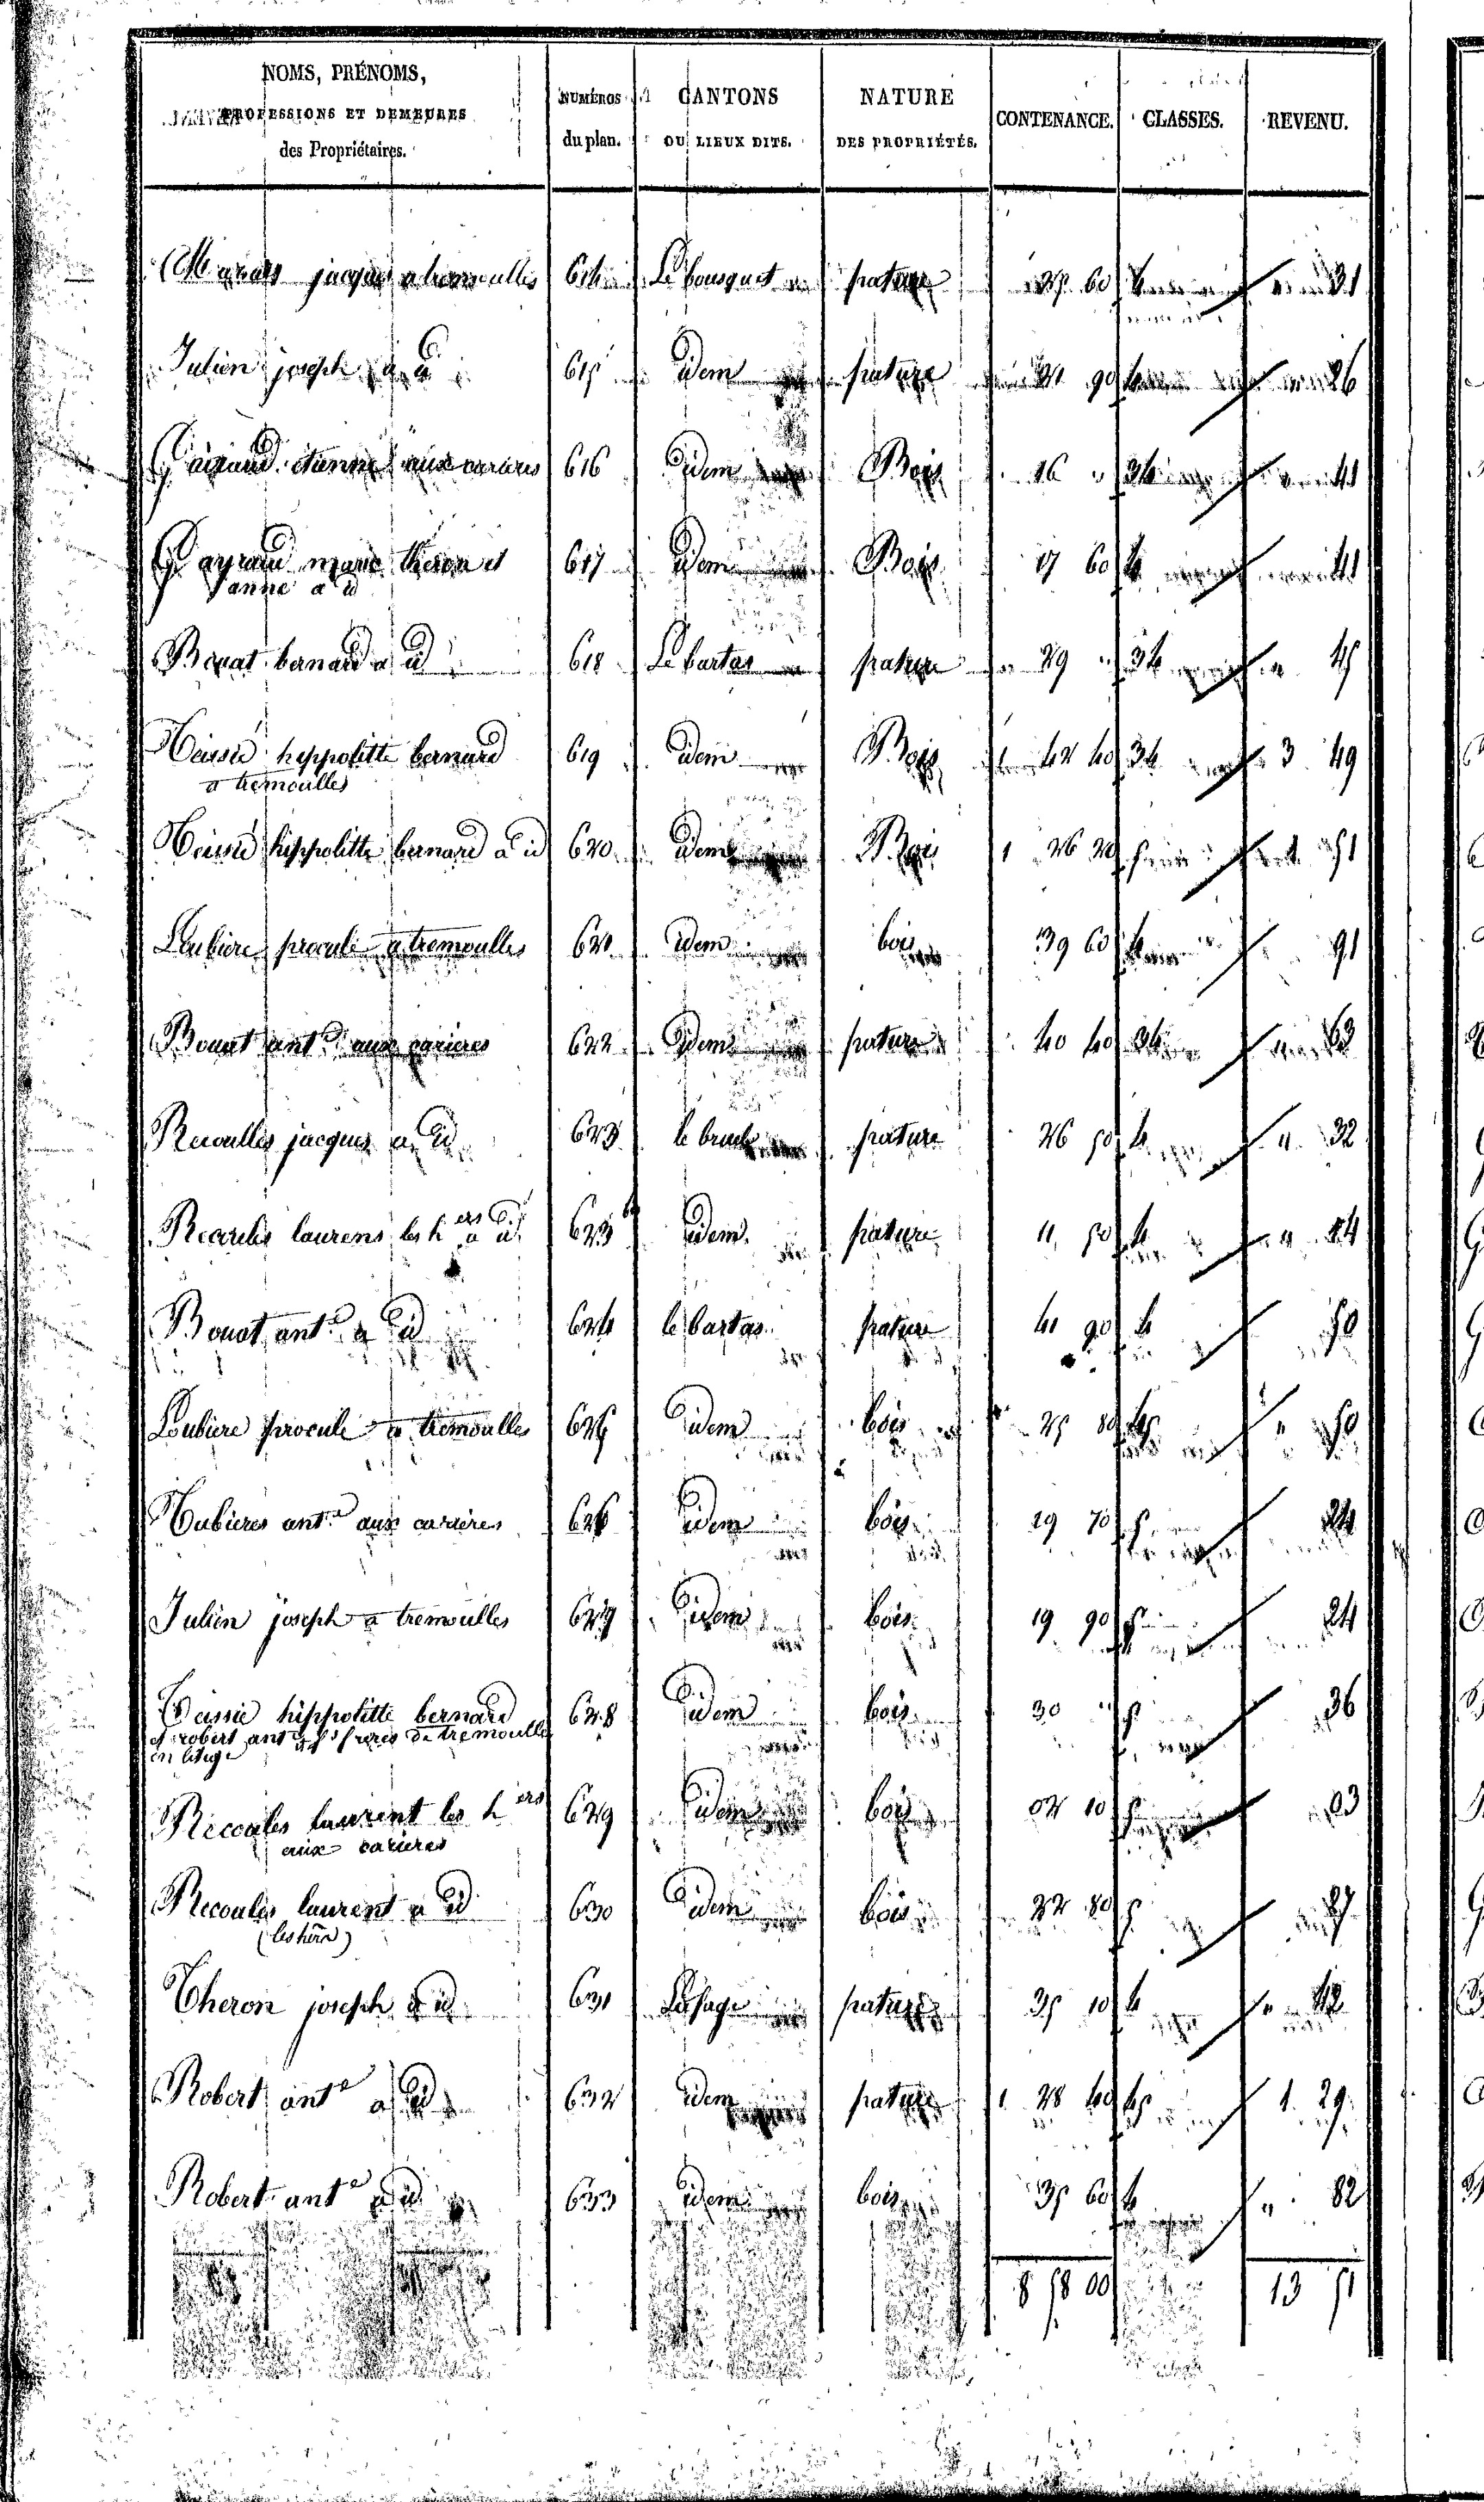 NOMS, PRÉNOMS,
PROFESSIONS ET DEMEURES
des Propriétaires.
NUMÉROS
du plan.
CANTONS
OU LIEUX DITS.
NATURE
DES PROPRIÉTÉS.
CONTENANCE.
CLASSES.
REVENU.
jacques a tremouilles 614 Le bousquet pature 60 4 31
Julien joseph a id 615 idem pature 21 90 4 26
etienne aux carieres 616 idem Bois 16 " 3 4 41
marie theron et 617 idem Bois 17 60 4 41
anne a id
bernard a id 618 Le bartas pature 29 " 3 4 45
hyppolitte bernard 619 idem Bois 1 42 40 3 4 3 49
a tremouilles
hippolitte bernard a id 620 idem Bois 1 26 20 5 1 51
Loubiere procule a tremoulles 621 idem bois 39 60 4 91
Bouat ant.e aux carieres 622 idem pature 40 40 3 4 63
jacques a id 623 le pature 26 50 4 " 32
laurens les h ers a id 623 b idem pature 11 50 4 " 14
Bouat ant.e a id 624 le bartas pature 41 90 4 50
Loubiere procule a tremoulles 625 idem bois 25 80 4 5 " 50
ant.e aux carieres 626 idem bois 19 70 5 24
Julien joseph a tremoulles 627 idem bois 19 90 5 24
hippolitte bernard 628 idem bois 30 " 5 36
et robert ant.e freres de tremoulles
en litige
Recoules laurent les h ers 629 idem bois 02 10 5 03
aux carieres
Recoules laurent a id 630 idem bois 22 80 5 27
Theron joseph a id 631 Lafage pature 35 10 4 " 42
Robert ant.e a id 632 idem pature 1 28 40 4 5 1 29
Robert ant.e a id 633 idem bois 35 60 4 " 82
8 58 00 13 51